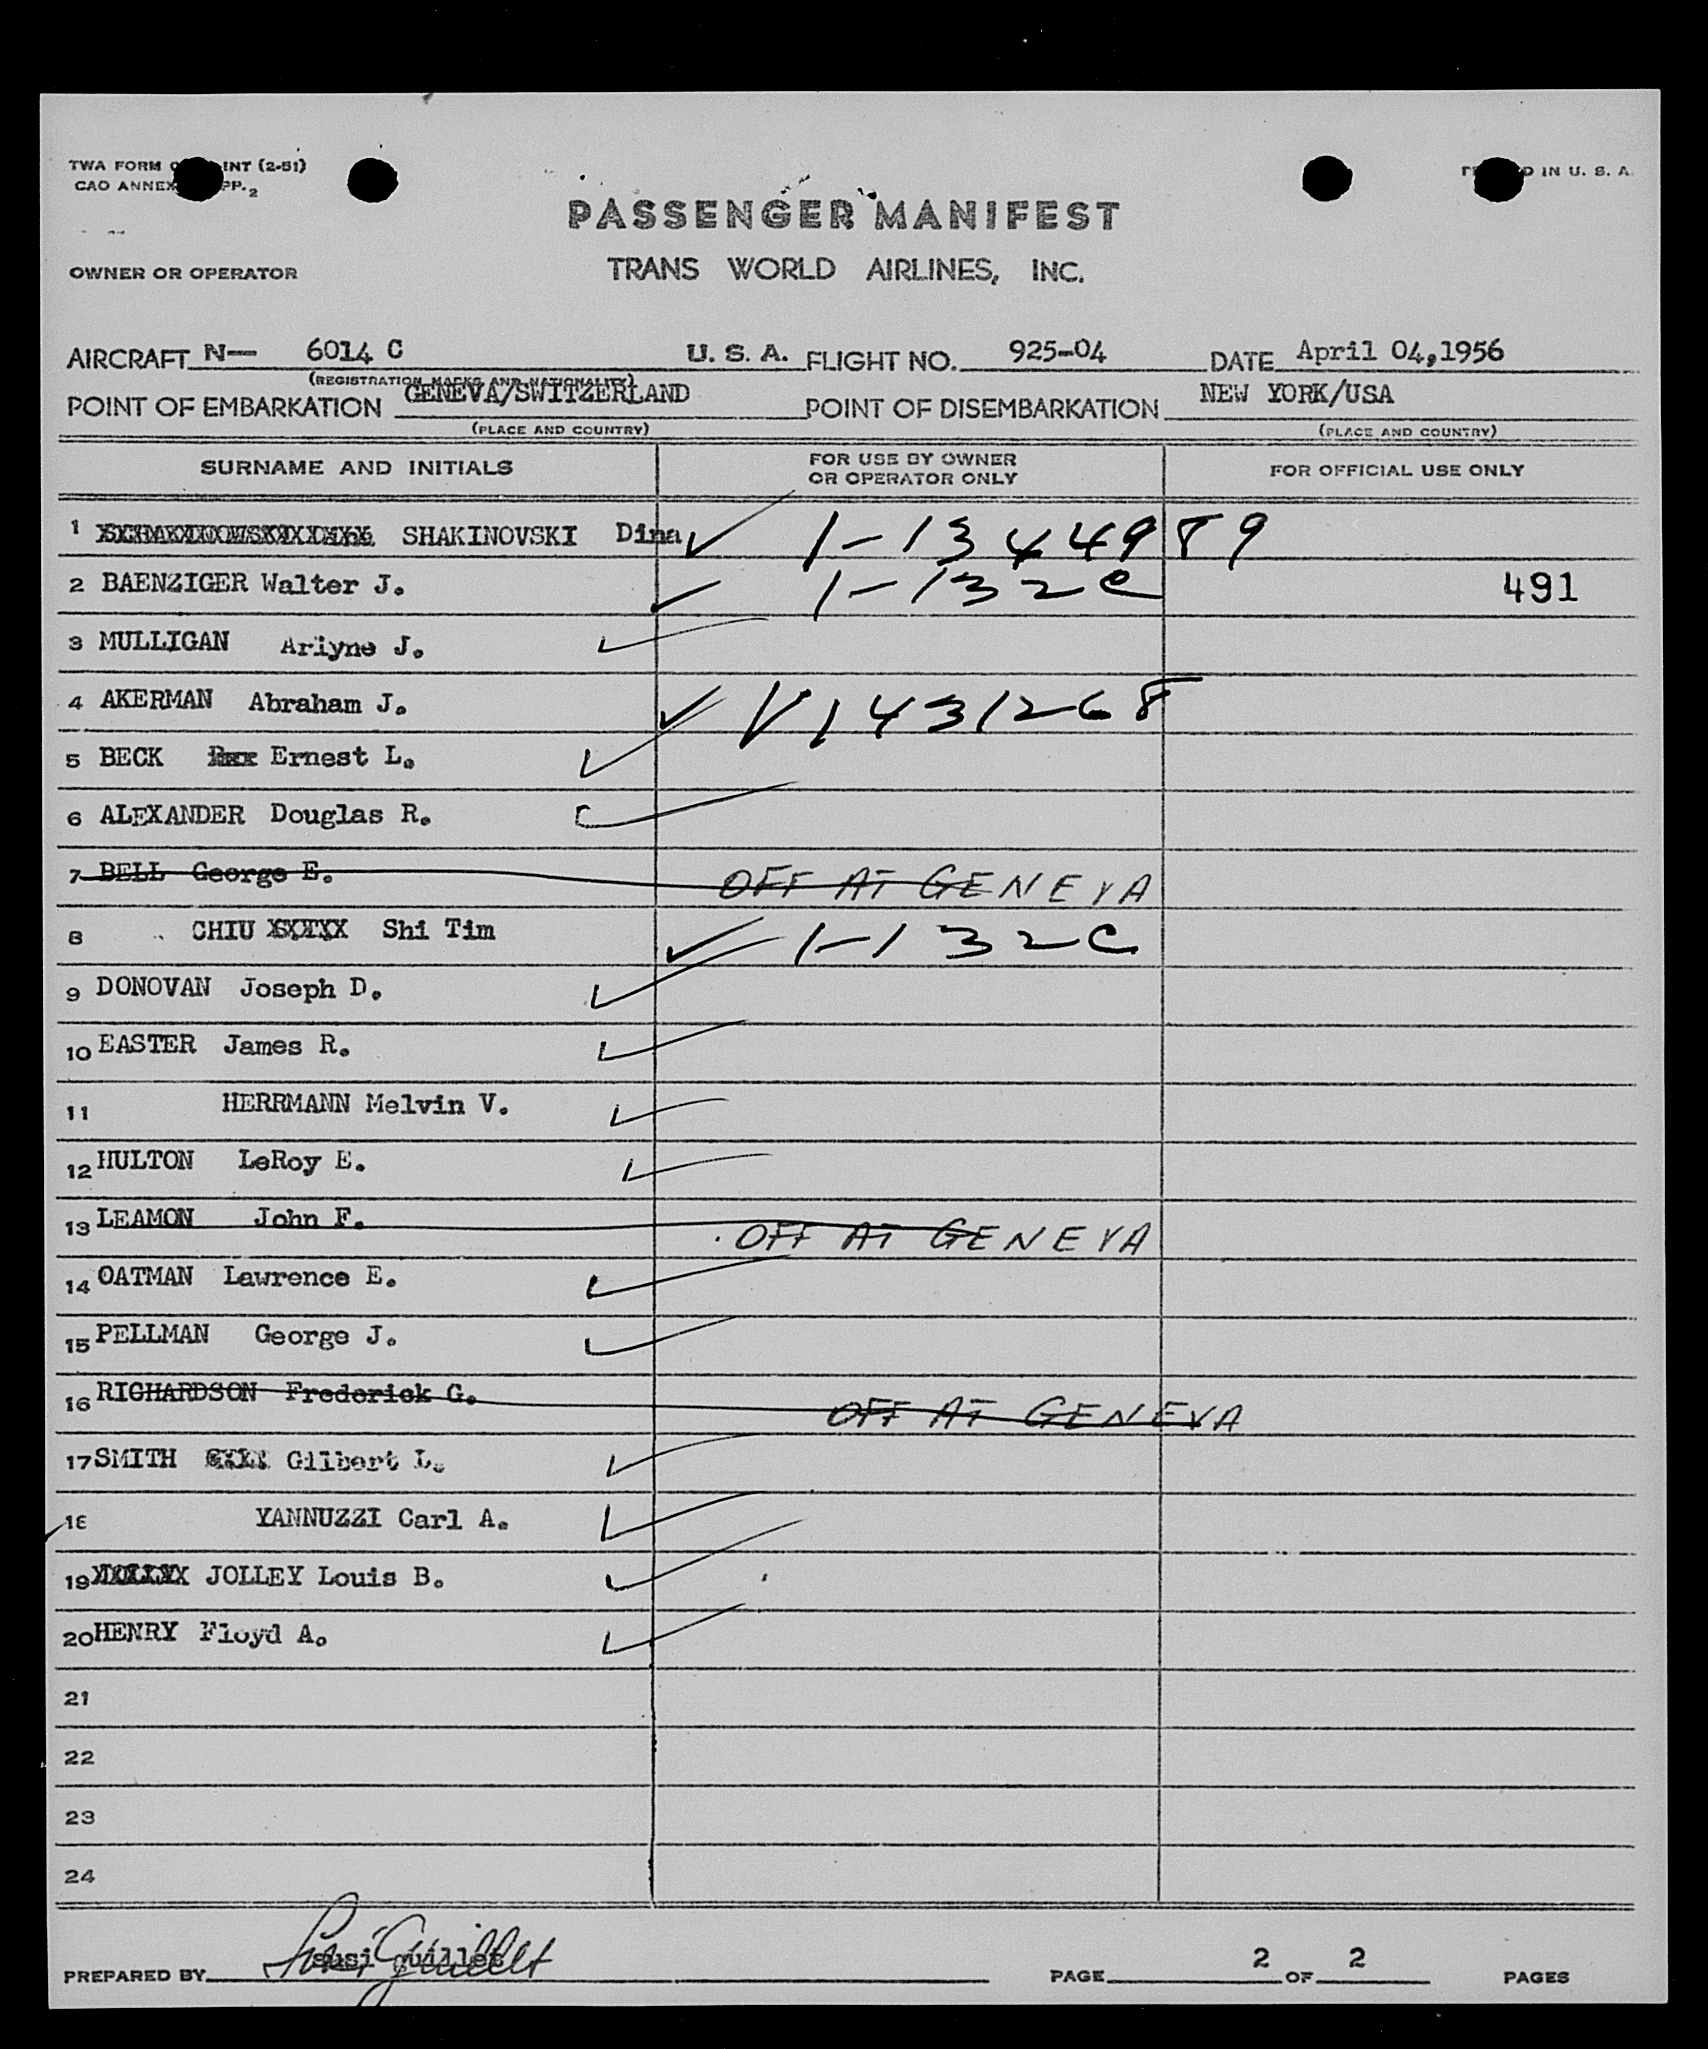 TWA FORM INT (2-51)
CAO ANNEX PP. 2
D IN U. S. A.
PASSENGER MANIFEST
OWNER OR OPERATOR
TRANS WORLD AIRLINES, INC.
AIRCRAFT N— 6014 C U. S. A. FLIGHT NO. 925-04 DATE April 04,1956
(REGISTRATION MARKS AND NATIONALITY)
POINT OF EMBARKATION GENEVA/SWITZERLAND POINT OF DISEMBARKATION NEW YORK/USA
(PLACE AND COUNTRY) (PLACE AND COUNTRY)
SURNAME AND INITIALS FOR USE BY OWNER OR OPERATOR ONLY FOR OFFICIAL USE ONLY
1 SHAKINOVSKI Dina 1-13444989
2 BAENZIGER Walter J. 1-132C 491
3 MULLIGAN Arlyne J.
4 AKERMAN Abraham J. V1431268
5 BECK Ernest L.
6 ALEXANDER Douglas R.
7 BELL George E. OFF AT GENEVA
8 CHIU Shi Tim 1-132C
9 DONOVAN Joseph D.
10 EASTER James R.
11 HERRMANN Melvin V.
12 HULTON LeRoy E.
13 LEAMON John F. OFF AT GENEVA
14 OATMAN Lawrence E.
15 PELLMAN George J.
16 RICHARDSON Frederick G. OFF AT GENEVA
17 SMITH Gilbert L.
18 YANNUZZI Carl A.
19 JOLLEY Louis B.
20 HENRY Floyd A.
21
22
23
24
PREPARED BY susi guillet Susi Guillet PAGE 2 OF 2 PAGES